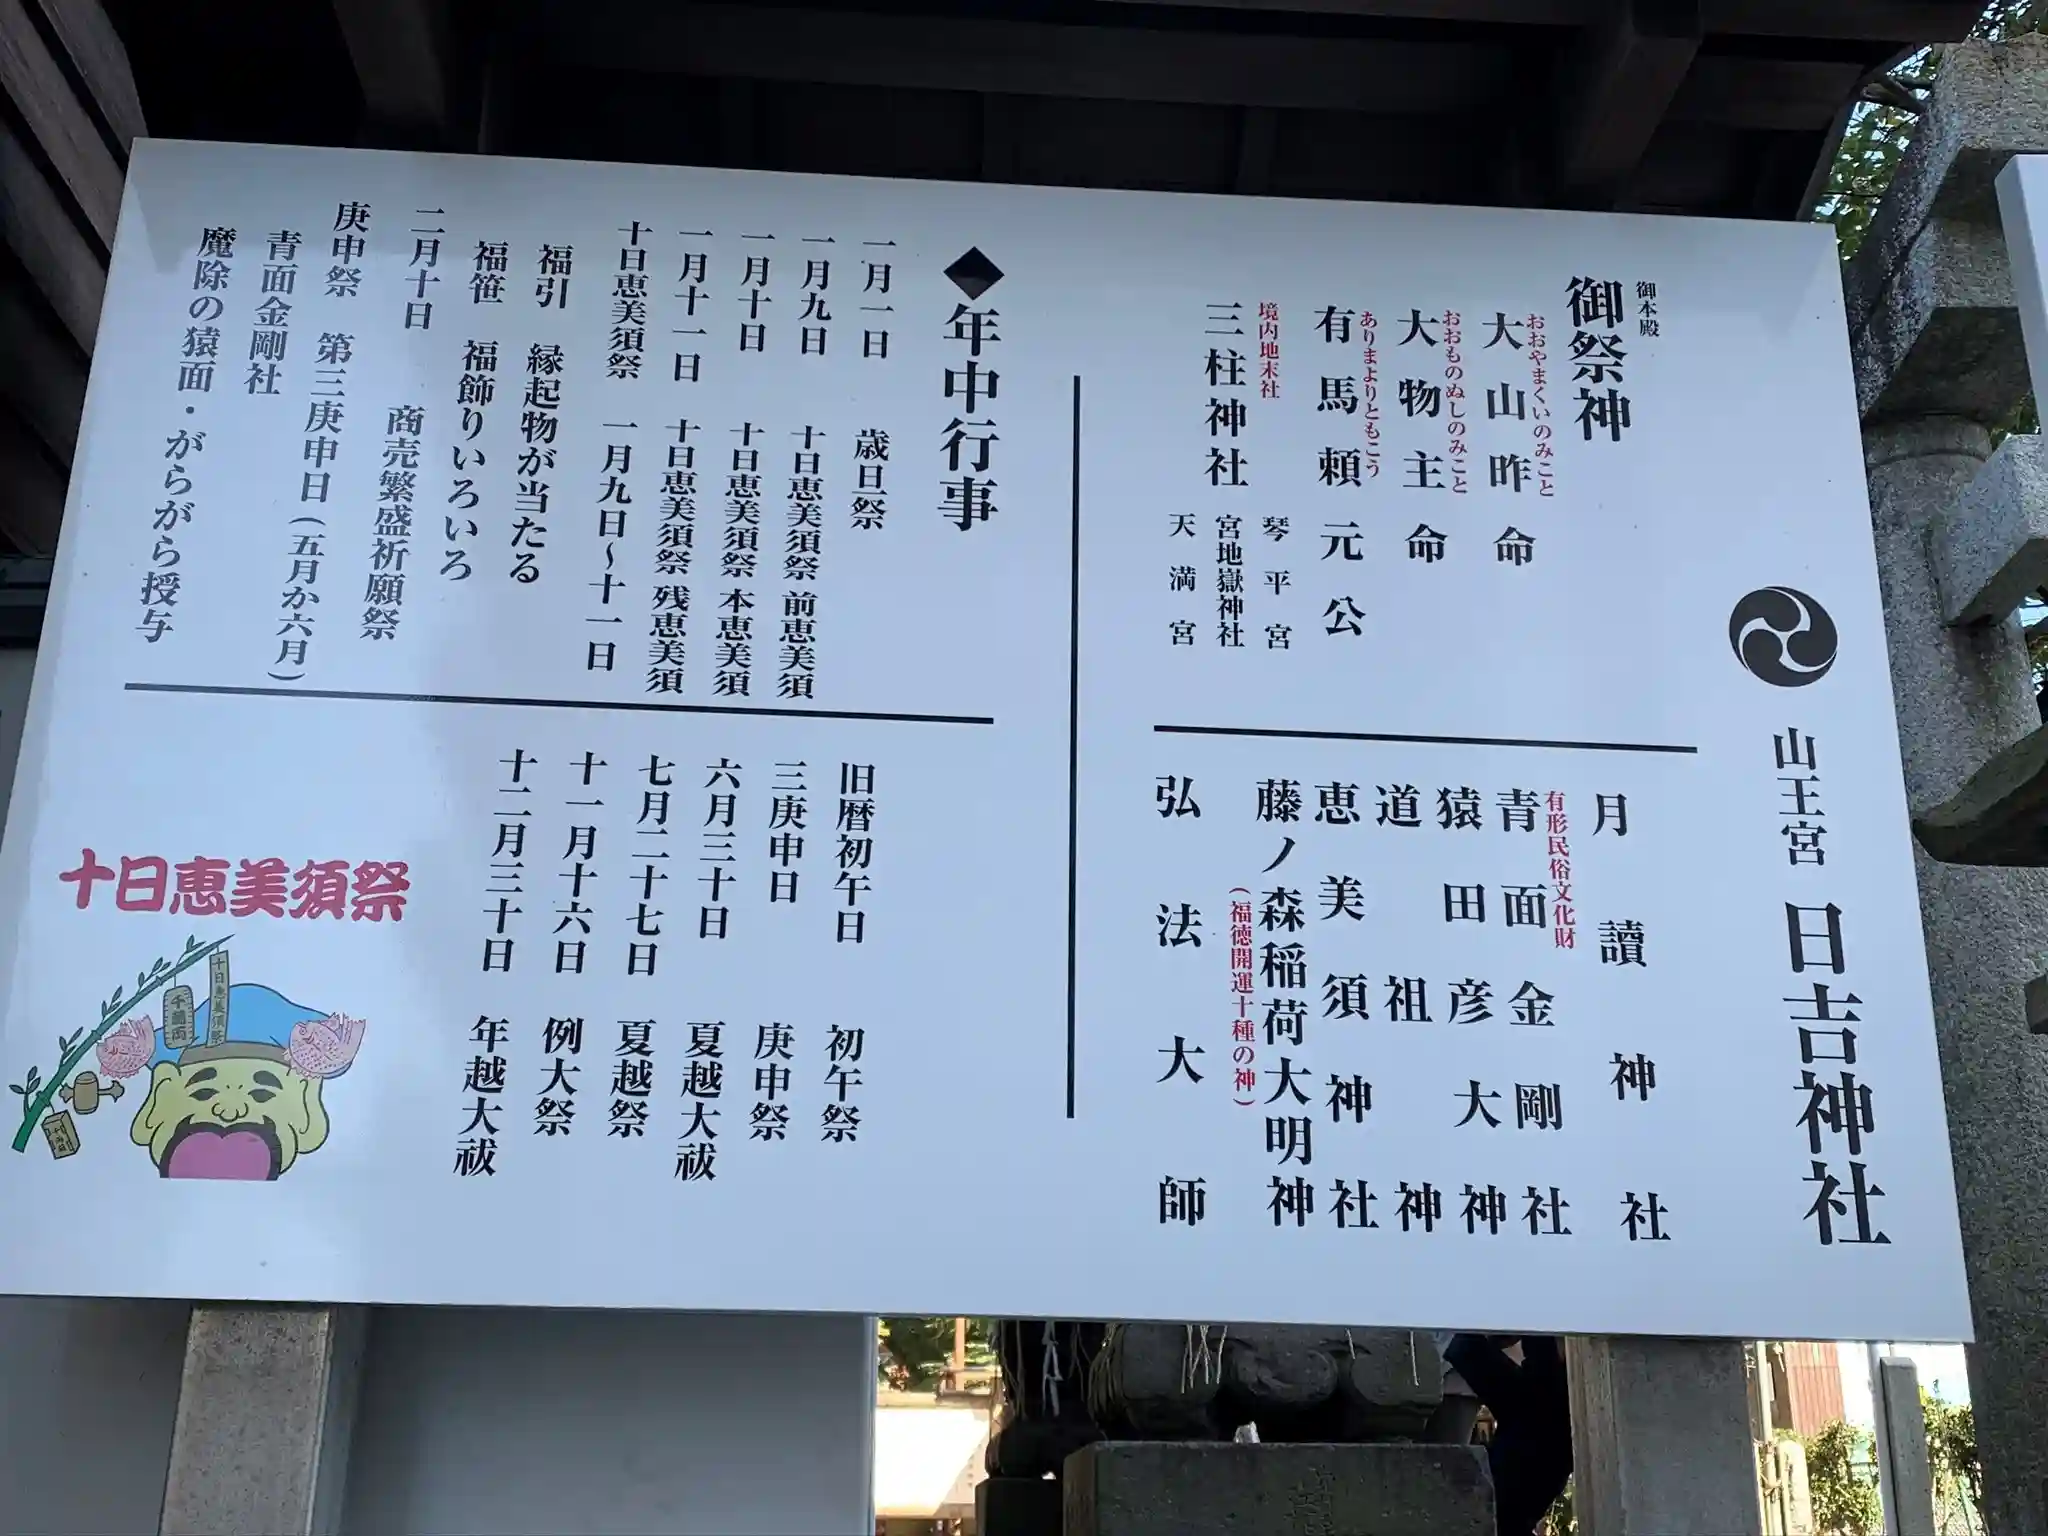 山王宮 日吉神社
御本殿
御祭神
おおやまくいのみこと
大山咋命
おおものぬしのみこと
大物主命
ありまよりともこう
有馬頼元公
境内地末社
三柱神社
琴平宮
宮地嶽神社
天満宮
月讀神社
有形民俗文化財
青面金剛社
猿田彦大神
道祖神
恵美須神社
藤ノ森稲荷大明神
(福徳開運十種の神)
弘法大師
◆年中行事
一月一日 歳旦祭
一月九日 十日恵美須祭 前恵美須
一月十日 十日恵美須祭 本恵美須
一月十一日 十日恵美須祭 残恵美須
十日恵美須祭 一月九日~十一日
福引 縁起物が当たる
福笹 福飾りいろいろ
二月十日 商売繁盛祈願祭
庚申祭 第三庚申日(五月か六月)
青面金剛社
魔除の猿面・がらがら授与
旧暦初午日 初午祭
三庚申日 庚申祭
六月三十日 夏越大祓
七月二十七日 夏越祭
十一月十六日 例大祭
十二月三十日 年越大祓
十日恵美須祭
十日恵美須祭
千両